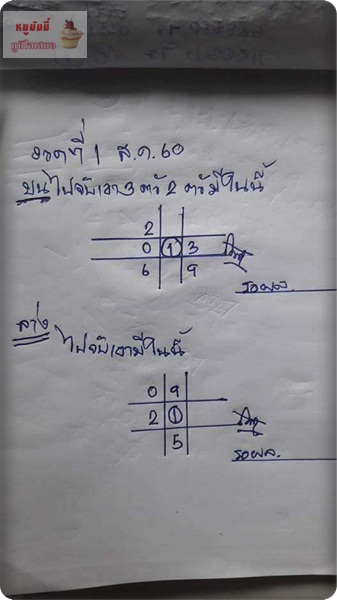 หมูบัมมี่
ภูมิใจเสนอ
งวดที่ 1 ส.ค. 60
บนไปจับเอา 3 ตัว 2 ตัวมีในนี้
2
0 1 3
6 9
รอผล.
ล่าง
ไปจับเอามีในนี้
0 9
2 1
5
รอผล.